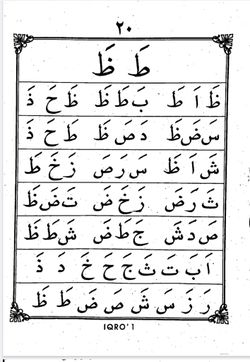 ٢٠
طَ ظَ
ظَ اَ طَ بَ طَ ظَ ظَ حَ ذَ
سَ ضَ ظَ دَ صَ ظَ طَ حَ ذَ
شَ اَ ظَ سَ رَ صَ زَ خَ طَ
ثَ رَ ضَ زَ خَ ضَ تَ ضَ ظَ
صَ دَ شَ جَ طَ ضَ شَ طَ ظَ
اَ بَ تَ ثَ جَ حَ خَ دَ ذَ
رَ زَ سَ شَ صَ ضَ طَ ظَ
IQRO' 1